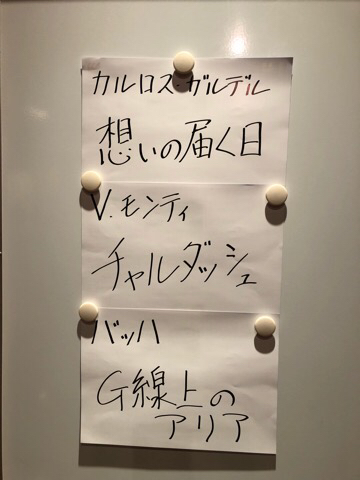 カルロス・ガルデル
想いの届く日
V.モンティ
チャルダッシュ
バッハ
G線上の
アリア